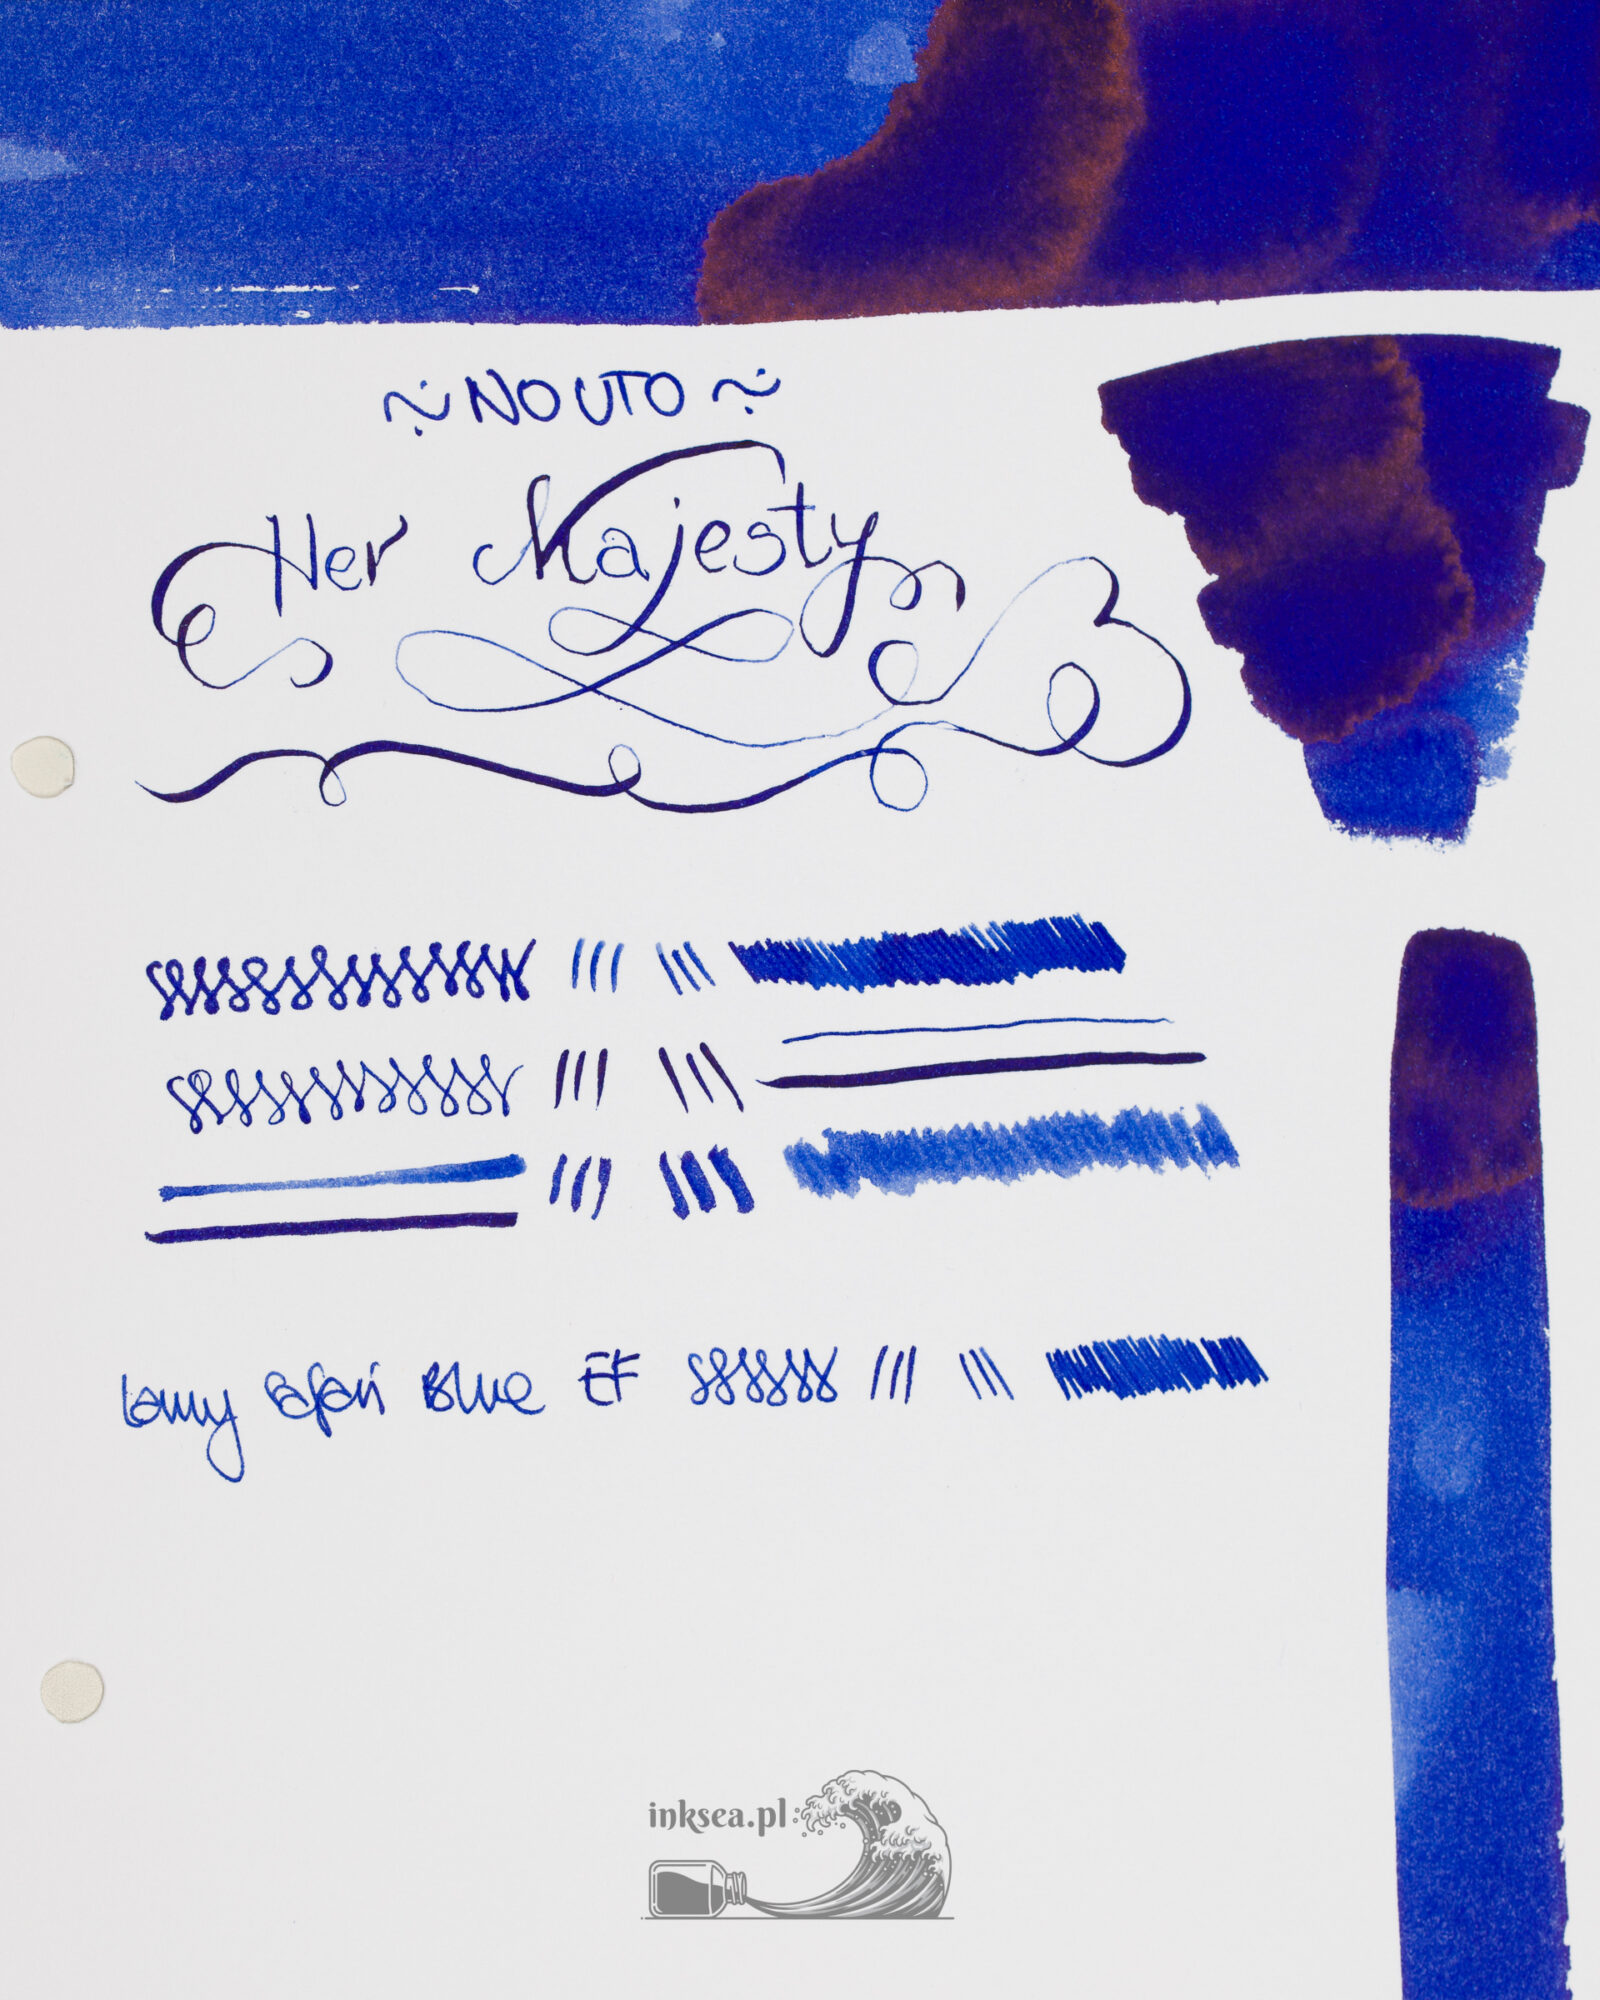 ~ NOUTO ~
Her Majesty
Lamy Safari Blue EF
inksea.pl